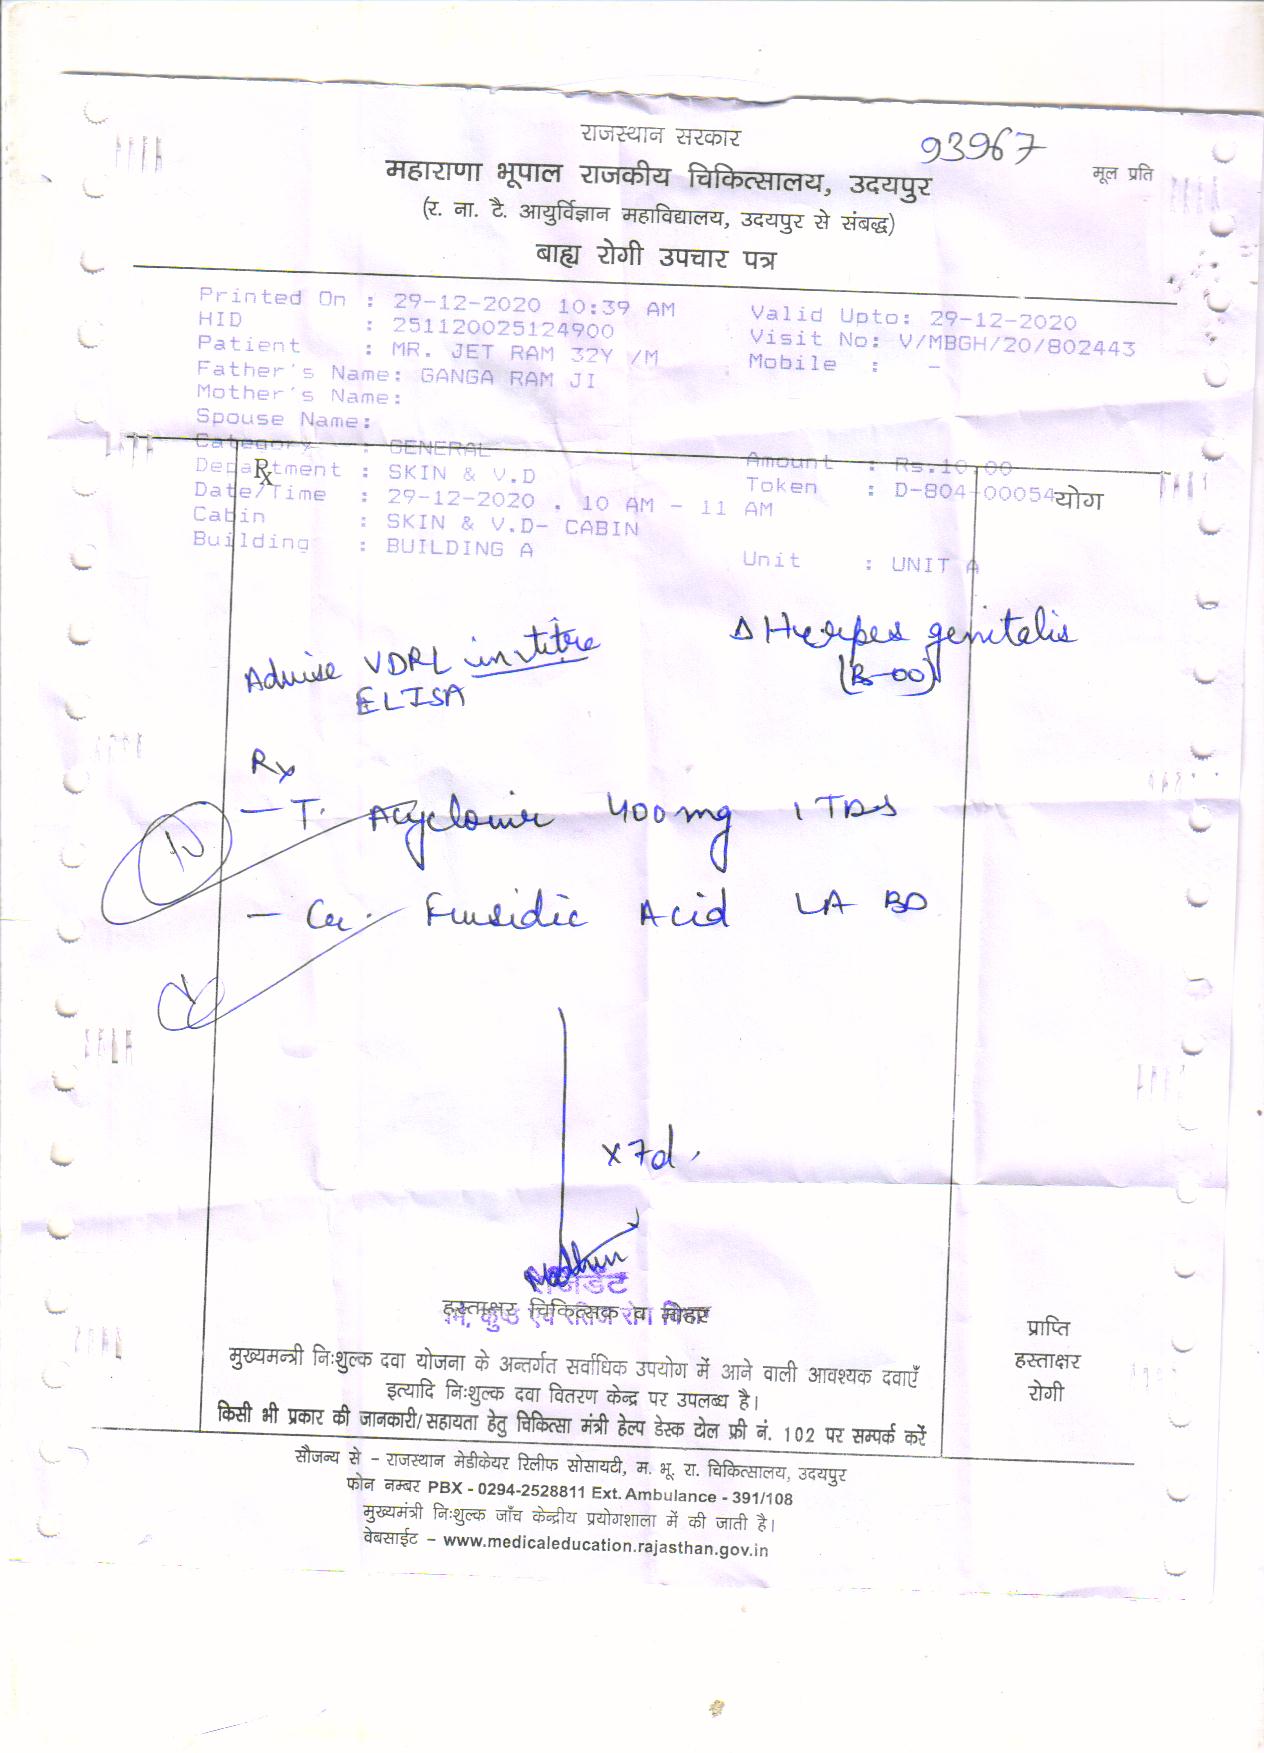 राजस्थान सरकार
93967
मूल प्रति
महाराणा भूपाल राजकीय चिकित्सालय, उदयपुर
(र. ना. टै. आयुर्विज्ञान महाविद्यालय, उदयपुर से संबद्ध)
बाह्य रोगी उपचार पत्र
Printed On : 29-12-2020 10:39 AM Valid Upto: 29-12-2020
HID : 251120025124900 Visit No: V/MBGH/20/802443
Patient : MR. JET RAM 32Y /M Mobile : -
Father's Name: GANGA RAM JI
Mother's Name:
Spouse Name:
Category : GENERAL Amount : Rs.10.00
Department : SKIN & V.D Token : D-804-00054
Rx योग
Date/Time : 29-12-2020 , 10 AM - 11 AM
Cabin : SKIN & V.D- CABIN
Building : BUILDING A Unit : UNIT A
Δ Herpes genitalis
(B-00)
Advise VDRL in titre
ELISA
Rx
- T. Acyclovir 400mg 1 TDS
- Cu. Fusidic Acid LA BD
x 7d.
हस्ताक्षर चिकित्सक व मोहर
प्राप्ति
हस्ताक्षर
रोगी
मुख्यमन्त्री निःशुल्क दवा योजना के अन्तर्गत सर्वाधिक उपयोग में आने वाली आवश्यक दवाएँ
इत्यादि निःशुल्क दवा वितरण केन्द्र पर उपलब्ध है।
किसी भी प्रकार की जानकारी/सहायता हेतु चिकित्सा मंत्री हेल्प डेस्क टोल फ्री नं. 102 पर सम्पर्क करें
सौजन्य से – राजस्थान मेडीकेयर रिलीफ सोसायटी, म. भू. रा. चिकित्सालय, उदयपुर
फोन नम्बर PBX - 0294-2528811 Ext. Ambulance - 391/108
मुख्यमंत्री निःशुल्क जाँच केन्द्रीय प्रयोगशाला में की जाती है।
वेबसाईट – www.medicaleducation.rajasthan.gov.in